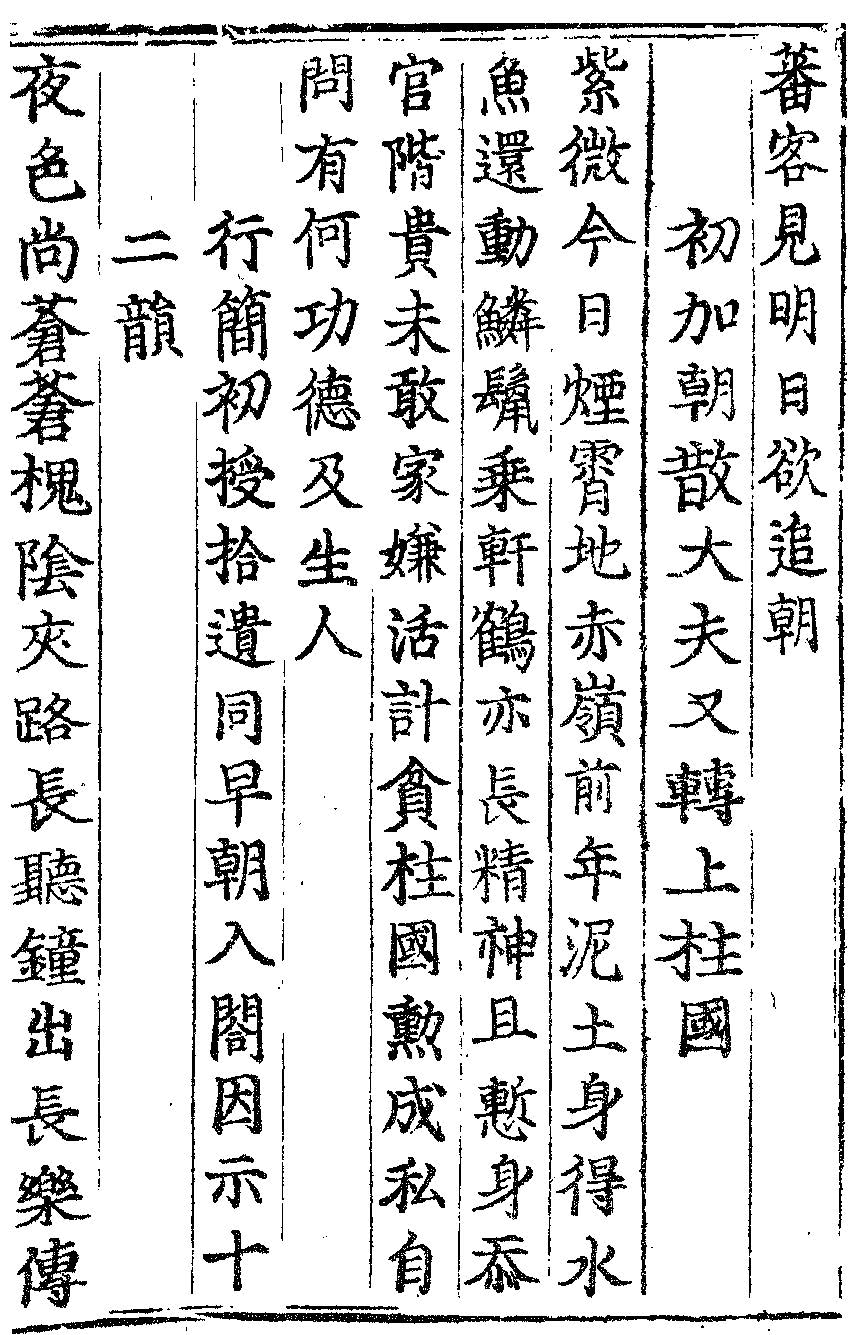 蕃客見明日欲追朝
初加朝散大夫又轉上柱國
紫微今日煙霄地赤嶺前年泥土身得水
魚還動鱗鬛乗軒鶴亦長精神且慙身忝
官階貴未敢家嫌活計貧柱國勲成私自
問有何功德及生人
行簡初授拾遺同早朝入閤因示十
二韻
夜色尚蒼蒼槐隂夾路長聽鐘出長樂傳